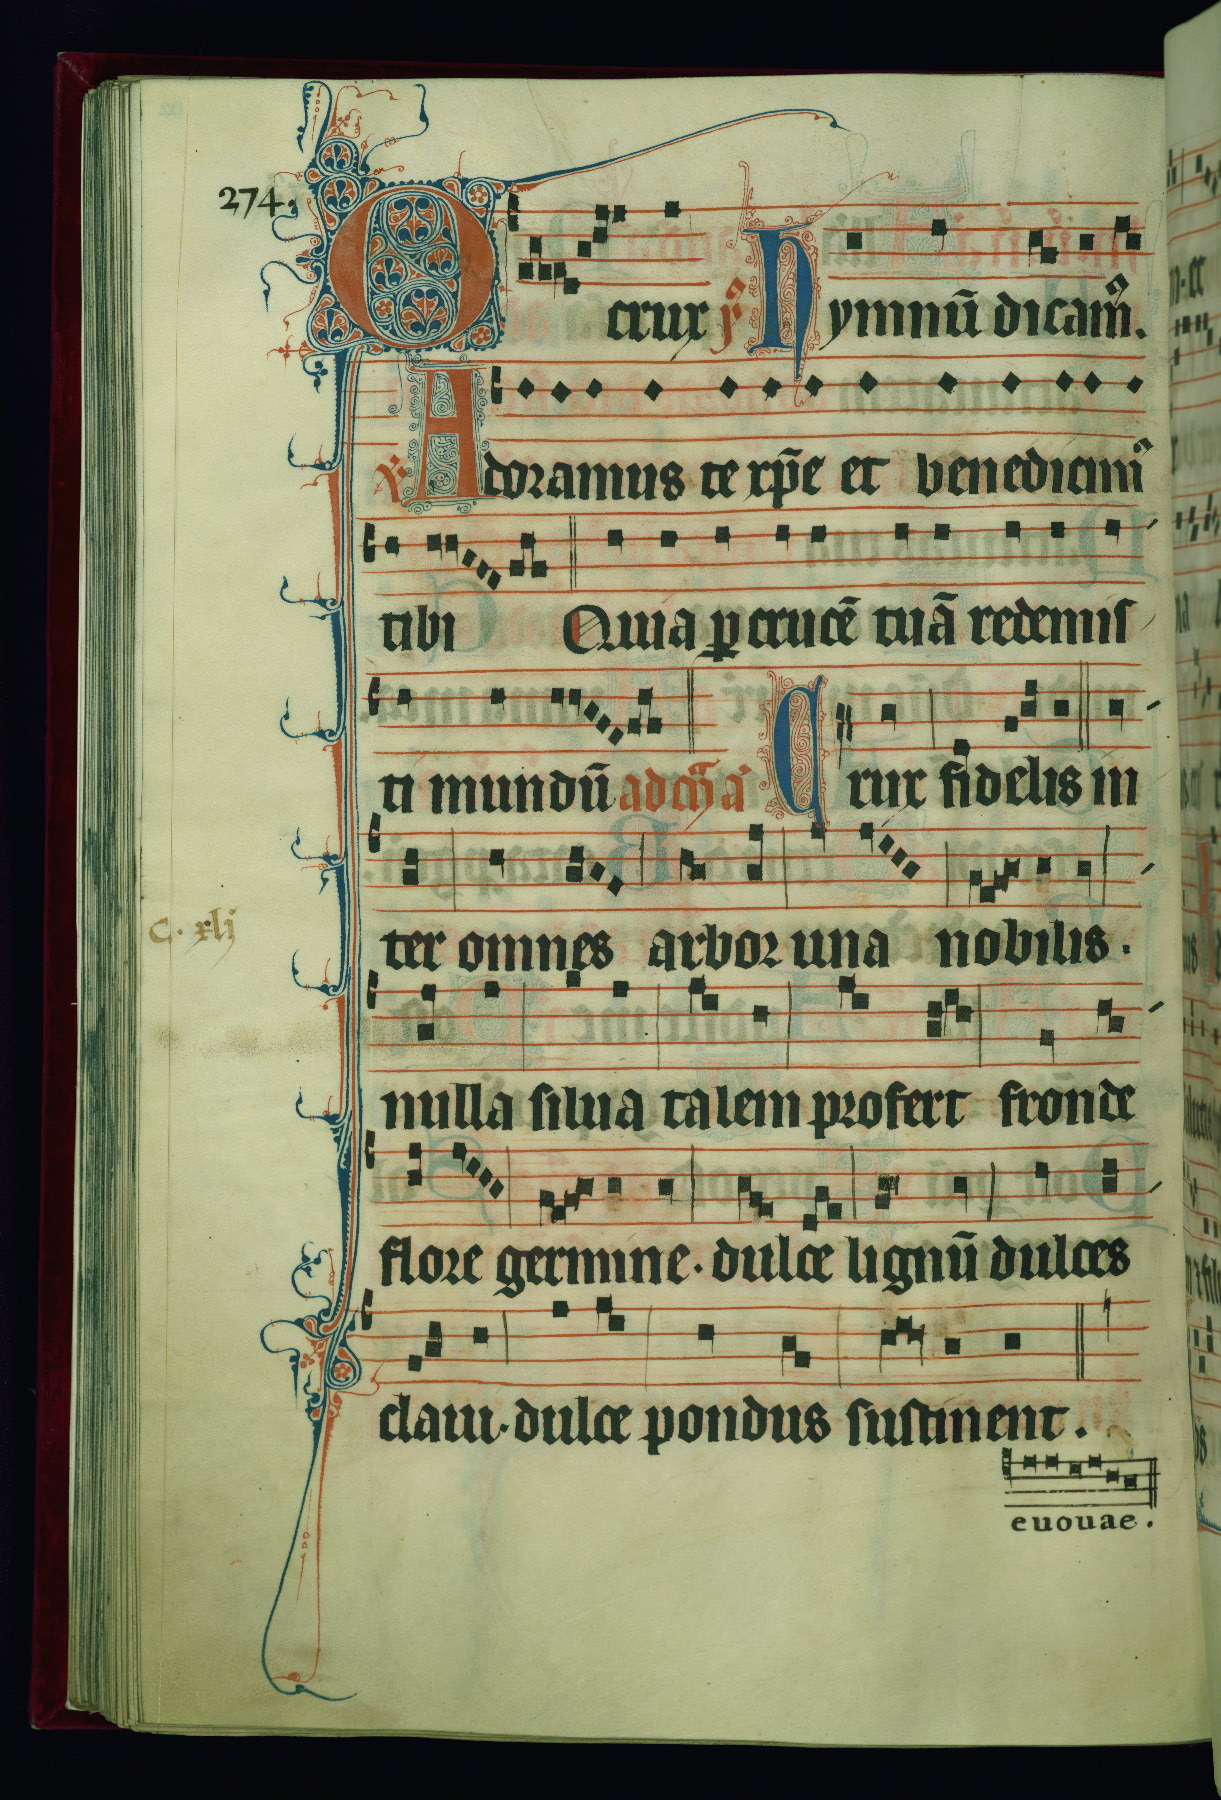 274.
O crux ℟ hymnū dicam᷒.
℣ Adoramus te xp̄e et benedicim᷒
tibi Quia ꝑ crucē tuā redemis
ti mundū ad Crux fidelis in
ter omnes arbor una nobilis.
C. xlj
nulla silua talem profert fronde
flore germine. dulce lignū dulces
claui. dulce pondus sustinent.
euouae.